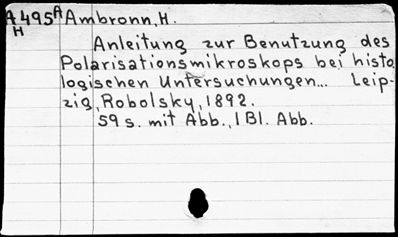 A495 A Ambronn, H.
H
Anleitung zur Benutzung des
Polarisationsmikroskops bei histo
logischen Untersuchungen... Leip-
zig, Robolsky, 1892.
59 s. mit Abb., 1 Bl. Abb.